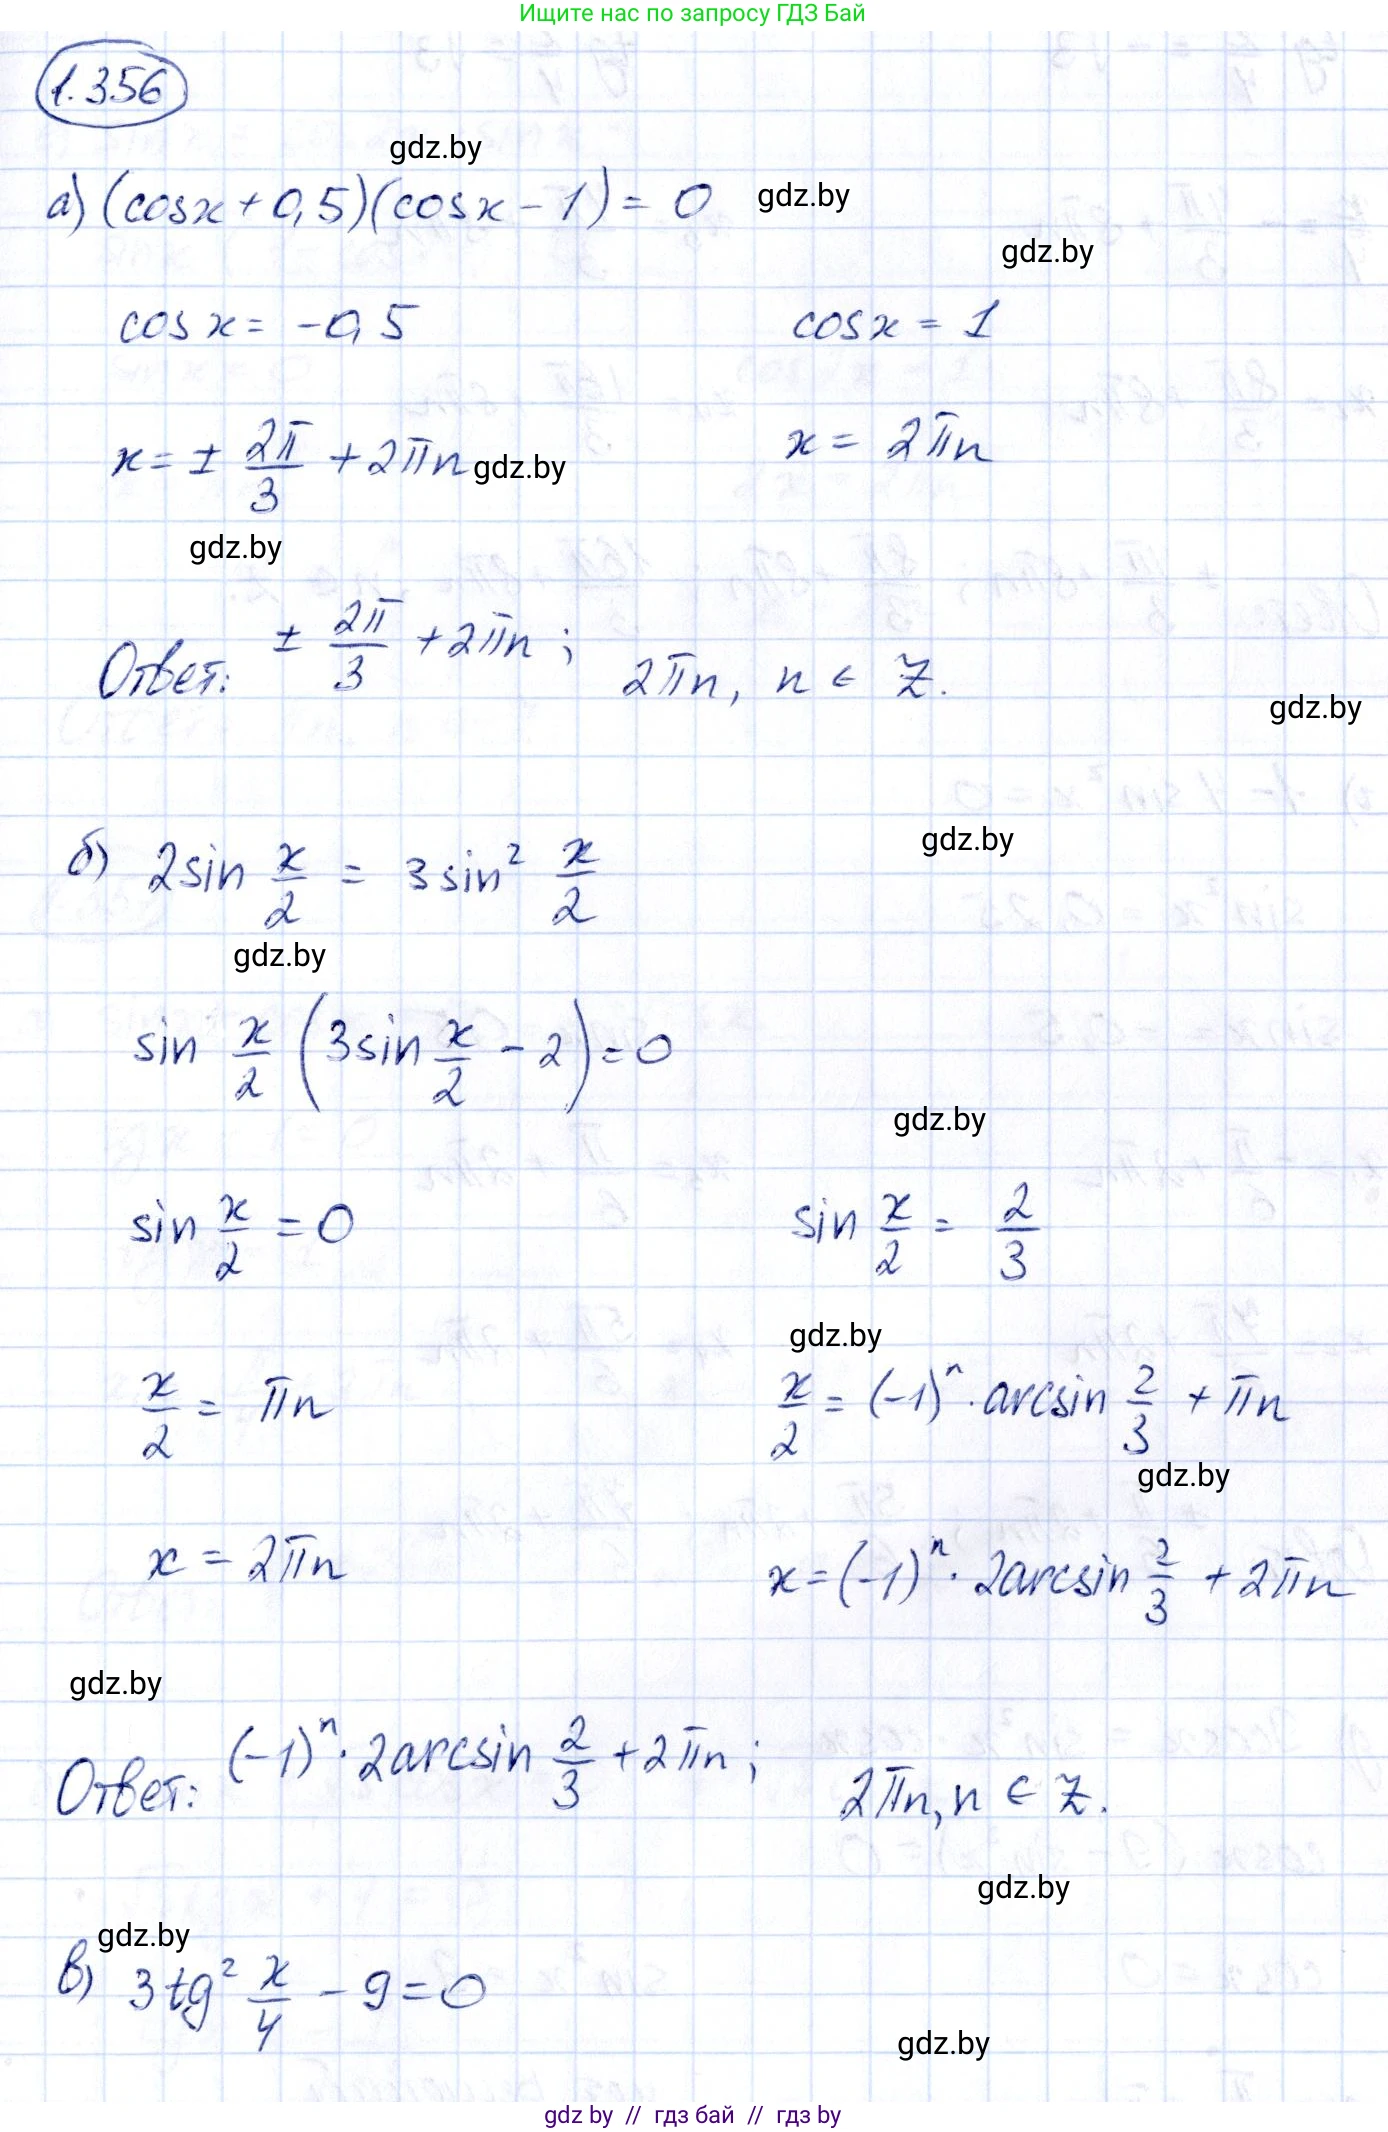 Ищите нас по запросу ГДЗ Бай
1.356
gdz.by
а) (cosx + 0,5)(cosx - 1) = 0 gdz.by
gdz.by
cosx = -0,5 cosx = 1
x = ± 2π/3 + 2πn gdz.by x = 2πn
gdz.by
Ответ: ± 2π/3 + 2πn; 2πn, n ∈ Z.
gdz.by
gdz.by
б) 2sin x/2 = 3sin² x/2
gdz.by
sin x/2 (3sin x/2 - 2) = 0
gdz.by
sin x/2 = 0 sin x/2 = 2/3
gdz.by
x/2 = πn x/2 = (-1)ⁿ · arcsin 2/3 + πn
gdz.by
x = 2πn x = (-1)ⁿ · 2arcsin 2/3 + 2πn
gdz.by
Ответ: (-1)ⁿ · 2arcsin 2/3 + 2πn; 2πn, n ∈ Z.
gdz.by
gdz.by
в) 3tg² x/4 - 9 = 0
gdz.by
gdz by // гдз бай // гдз by